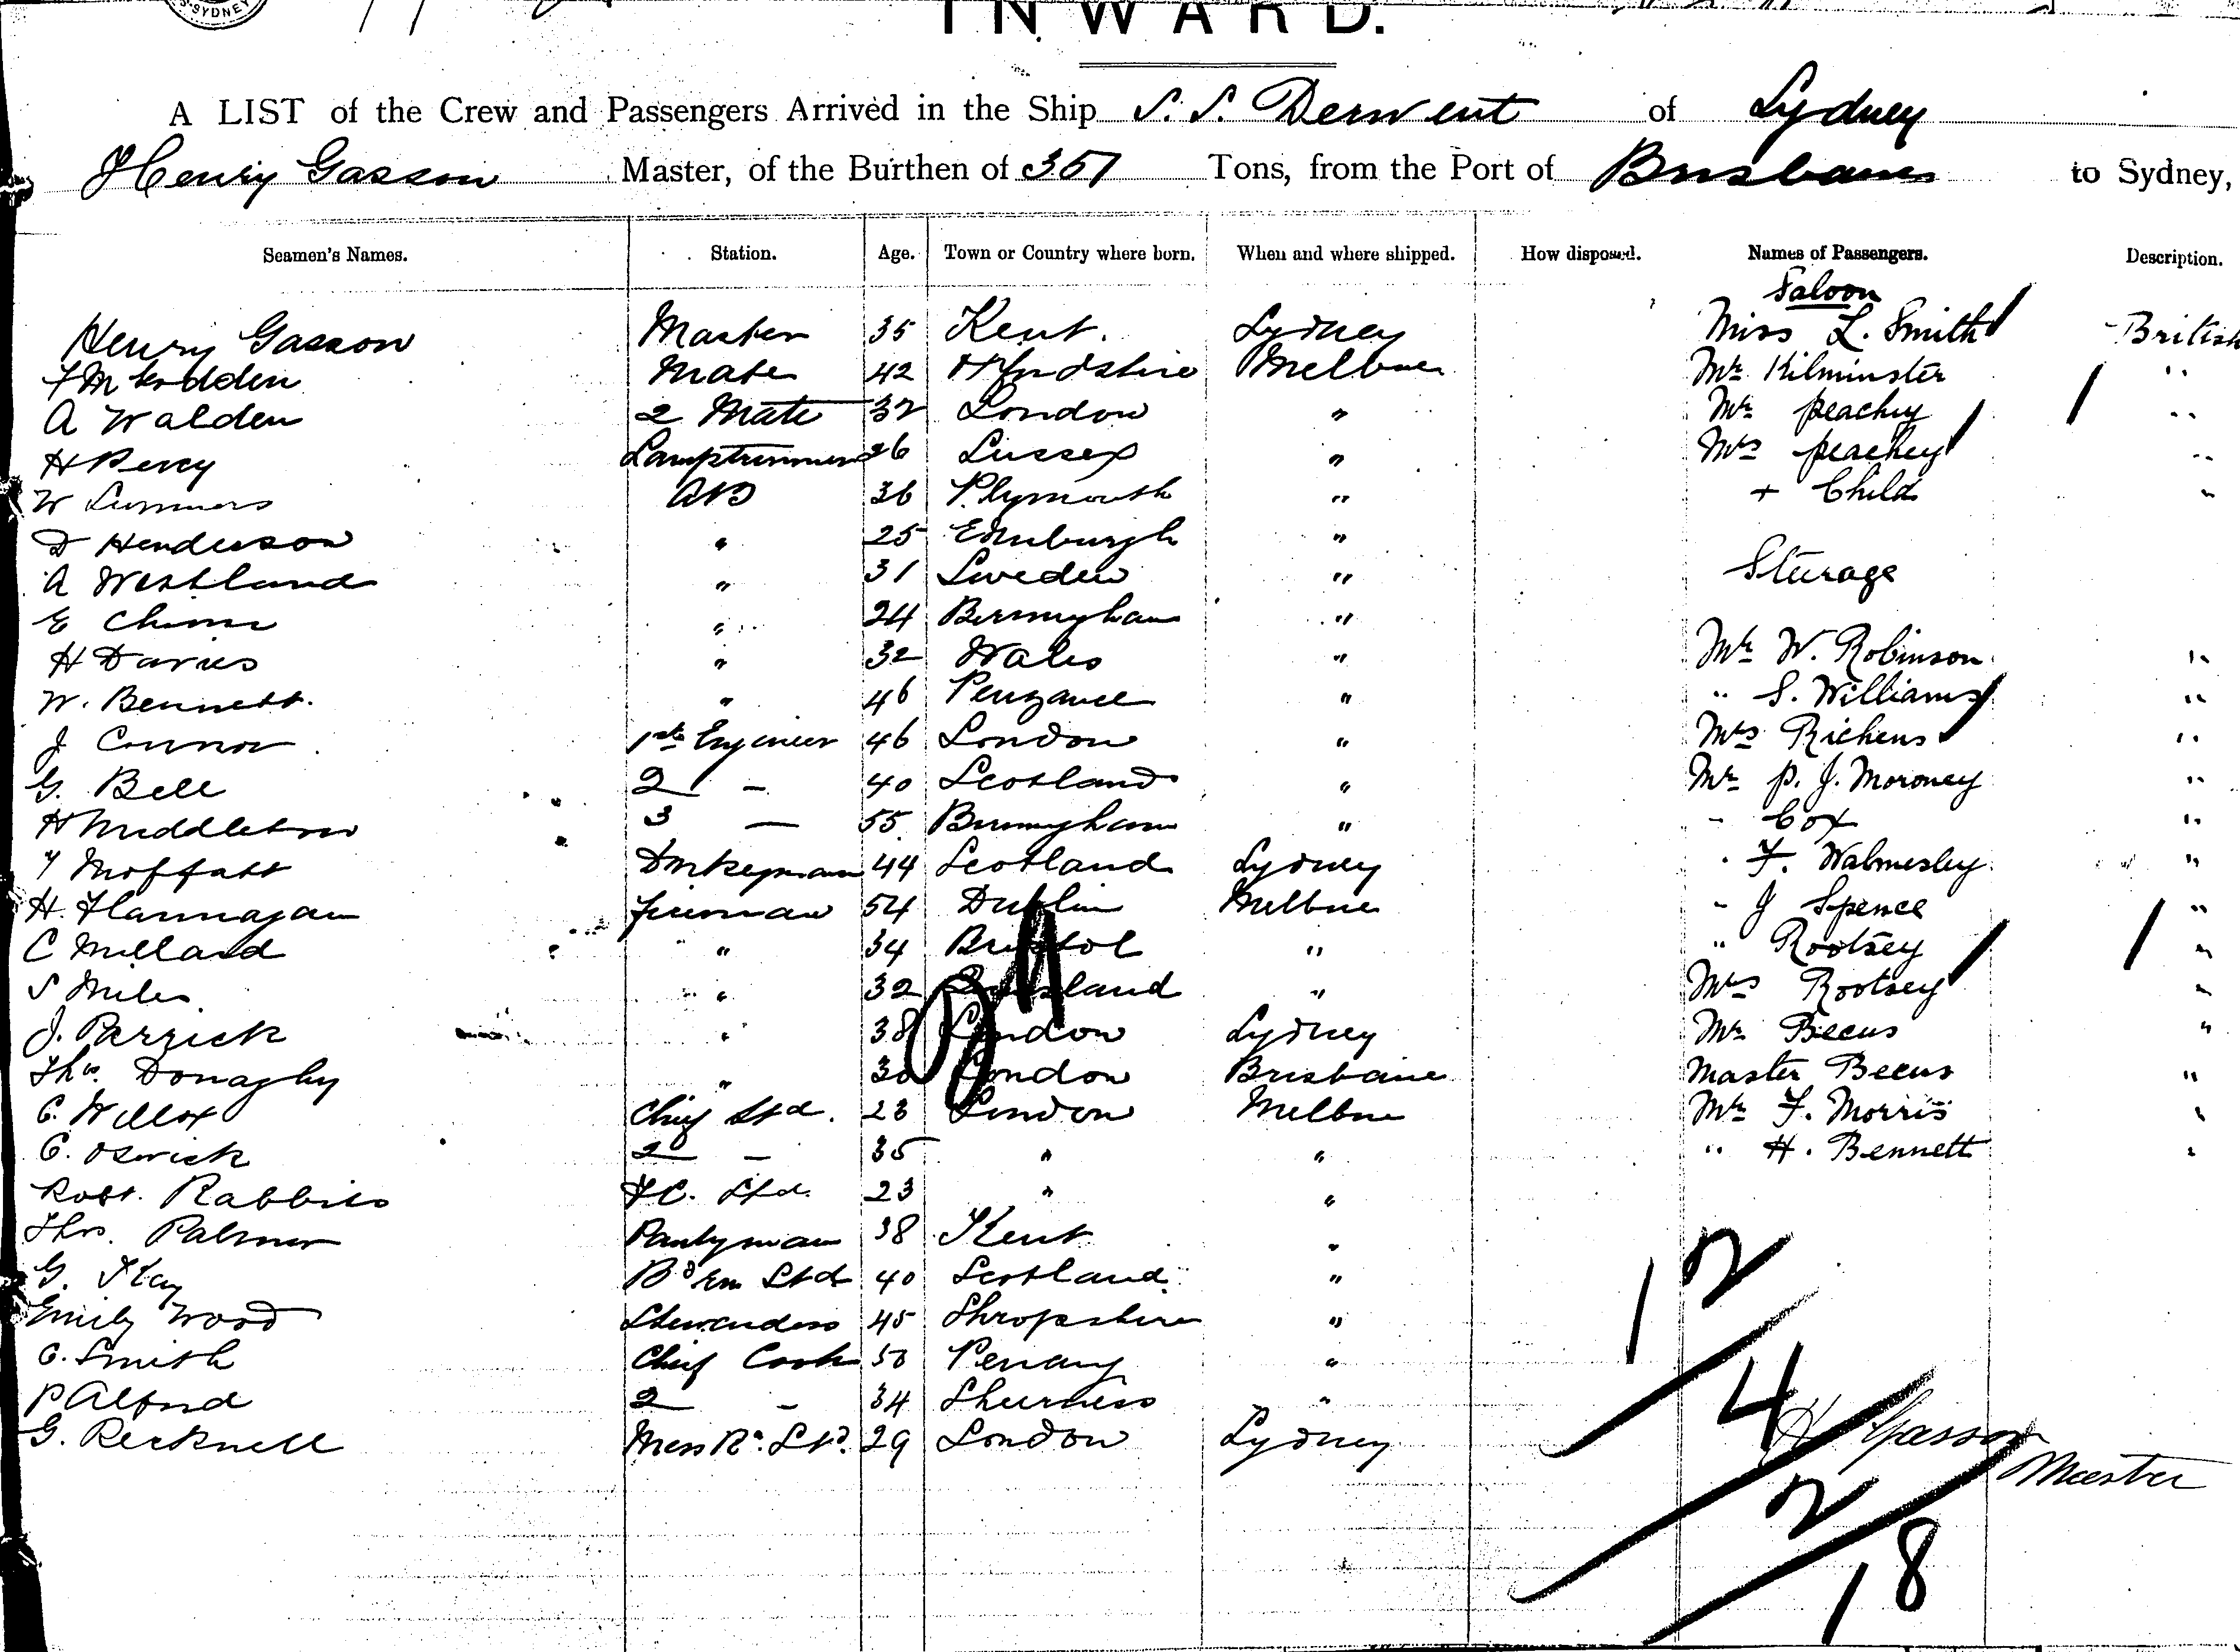 SYDNEY
INWARD.
A LIST of the Crew and Passengers Arrived in the Ship S. S. Derwent of Sydney
Henry Gasson Master, of the Burthen of 351 Tons, from the Port of Brisbane to Sydney,
Seamen's Names. Station. Age. Town or Country where born. When and where shipped. How disposed. Names of Passengers. Description.
Saloon
Henry Gasson Master 35 Kent. Sydney Miss L. Smith British
Mate 42 Melbne Mr Kilminster "
A Walden 2 Mate 32 London " Mr Peachey "
H Percy Lamptrimmer 26 Sussex " Mrs Peachey "
W Summers AB 36 Plymouth " + Child "
D Henderson " 25 Edinburgh "
A Westland " 31 Sweden " Steerage
E " 24 Birmingham "
H Davies " 32 Wales " Mr W. Robinson "
W. Bennett. " 46 Penzance " " S. Williams "
J Connor 1st Engineer 46 London " Mrs Richens "
G. Bell 2 - 40 Scotland " Mr P. J. Moroney "
H Middleton 3 - 55 Birmingham " - Cox "
Moffatt Donkeyman 44 Scotland Sydney - F. Walmesley "
H. Flannagan Fireman 54 Dublin Melbne - J Spence "
C Millard " 34 Bristol " " Rootsey "
S Miles " 32 " Mrs Rootsey "
J. Parrick " 38 London Sydney Mr Beeus "
Thos. Donaghy " London Brisbane Master Beeus "
C. Willox Chief Std. 23 London Melbne Mr F. Morris "
C. Oswick 2 - 35 " " " H. Bennett "
Robt. Rabbits F.C. Std. 23 " "
Thos. Palmer Pantryman 38 Kent "
G. Kay Std 40 Scotland "
Emily Wood Stewardess 45 Shropshire "
C. Smith Chief Cook 50 Penang "
P Alford 2 - 34 Sheerness "
G. Recknell Mess Rm. Std. 29 London Sydney
12
4
H Gasson
Master
2
18